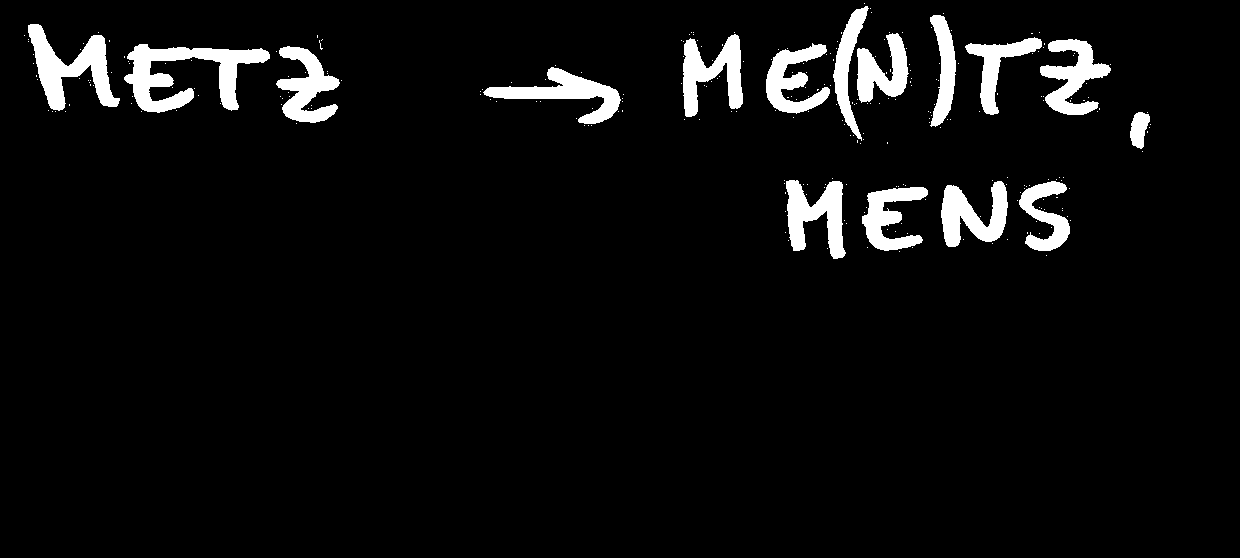 METZ → ME(N)TZ,
MENS